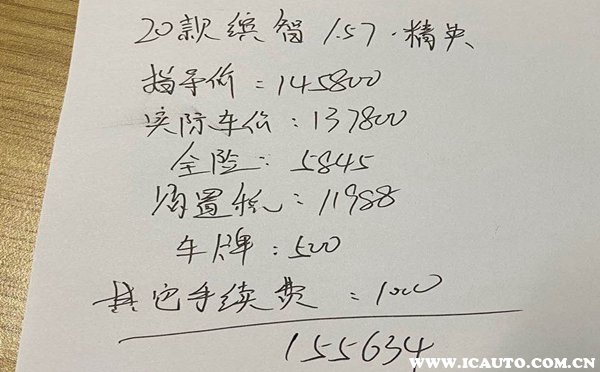 20款缤智 1.5T·精英
指导价：145800
实际车价：137800
全险：5845
购置税：11988
车牌：500
其它手续费：1000
155634
WWW.ICAUTO.COM.CN